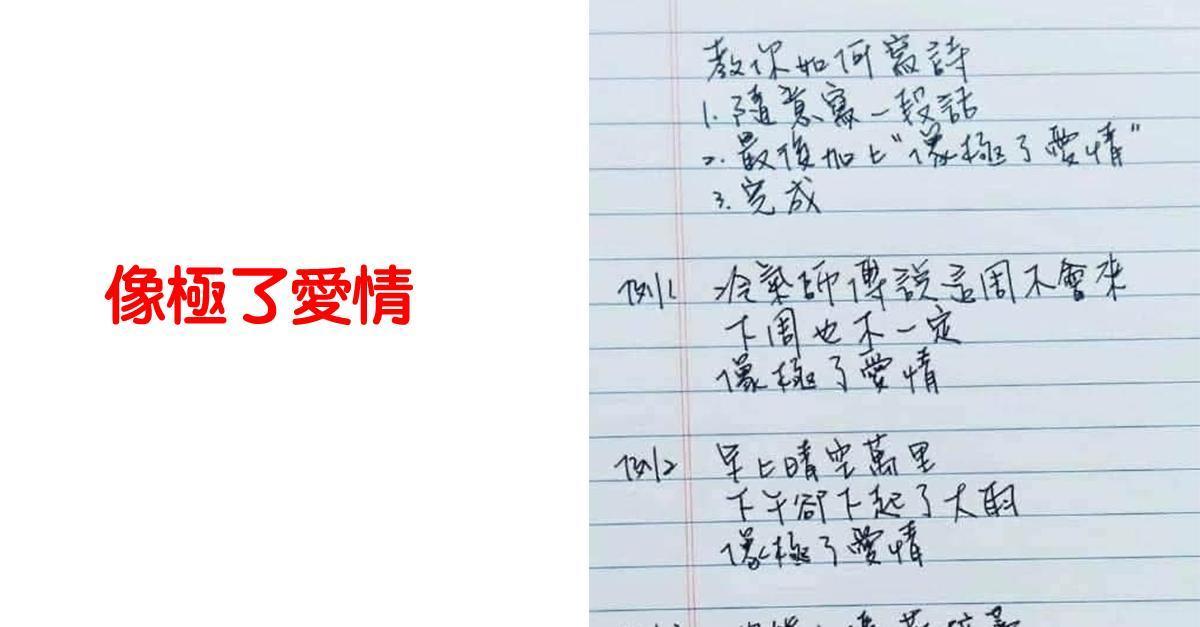 像極了愛情
教你如何寫詩
1. 隨意寫一段話
2. 最後加上"像極了愛情"
3. 完成
例1 冷氣師傅說這周不會來
下周也不一定
像極了愛情
例2 早上晴空萬里
下午卻下起了大雨
像極了愛情